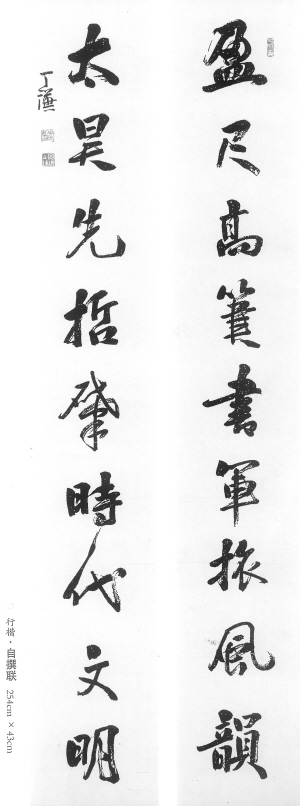 盈尺高筆書軍旅風韻
太昊先哲肇時代文明
丁謙
行楷·自撰联 254cm×43cm